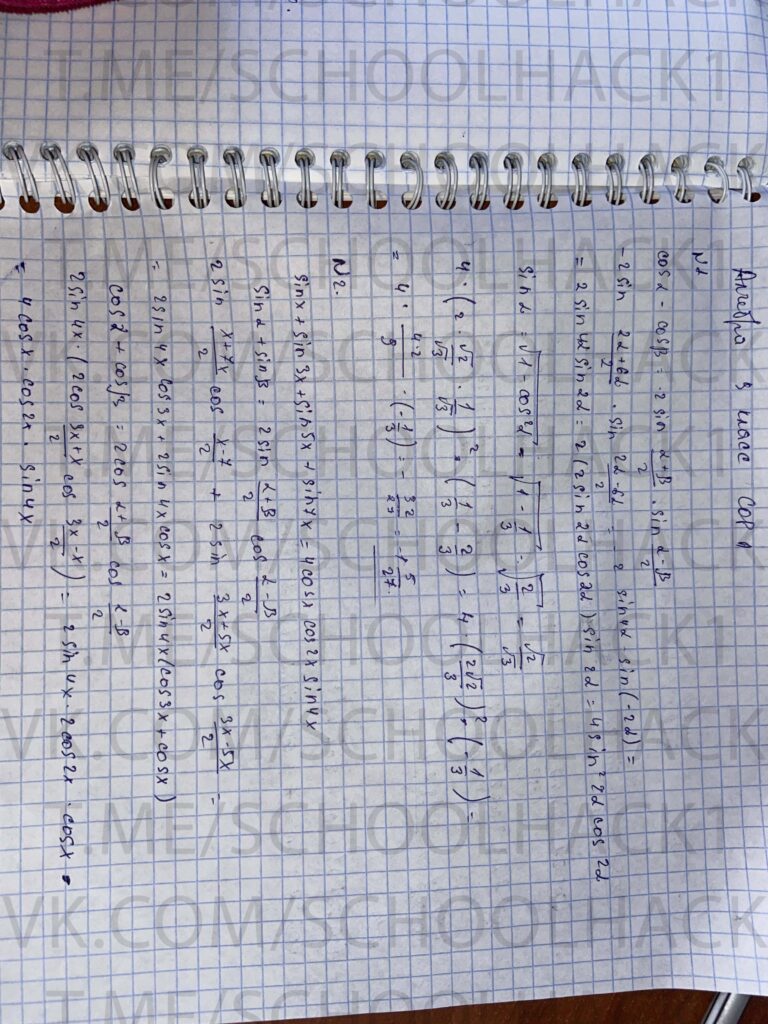 Алгебра 9 класс Сор 1
N1
cosα - cosβ = -2 sin (α+β)/2 · sin (α-β)/2
-2 sin (2α+6α)/2 · sin (2α-6α)/2 = -2 sin4α · sin(-2α) =
= 2 sin 4α sin 2α = 2 (2 sin 2α cos2α) sin 2α = 4 sin² 2α cos 2α
sin α = √(1 - cos²α) = √(1 - 1/3) = √(2/3) = √2/√3
4 · (2 · √2/√3 · 1/√3)² = (1/3 - 2/3) = 4 · (2√2/3)² · (-1/3) =
= 4 · (4·2)/9 · (-1/3) = - 32/27 = -1 5/27
N2.
sinx + sin 3x + sin 5x + sin 7x = 4 cosx cos2x sin4x
sin α + sin β = 2 sin (α+β)/2 cos (α-β)/2
2 sin (x+7x)/2 cos (x-7)/2 + 2 sin (3x+5x)/2 cos (3x-5x)/2 =
= 2 sin 4x cos 3x + 2 sin 4x cosx = 2 sin 4x (cos 3x + cosx)
cos α + cos β = 2 cos (α+β)/2 cos (α-β)/2
2 sin 4x · (2 cos (3x+x)/2 cos (3x-x)/2) = 2 sin 4x · 2 cos 2x · cosx =
= 4 cosx · cos 2x · sin 4x
T.ME/SCHOOLHACK1
VK.COM/SCHOOLHACK1
T.ME/SCHOOLHACK1
VK.COM/SCHOOLHACK1
T.ME/SCHOOLHACK1
VK.COM/SCHOOLHACK1
T.ME/SCHOOLHACK1
VK.COM/SCHOOLHACK1
T.ME/SCHOOLHACK1